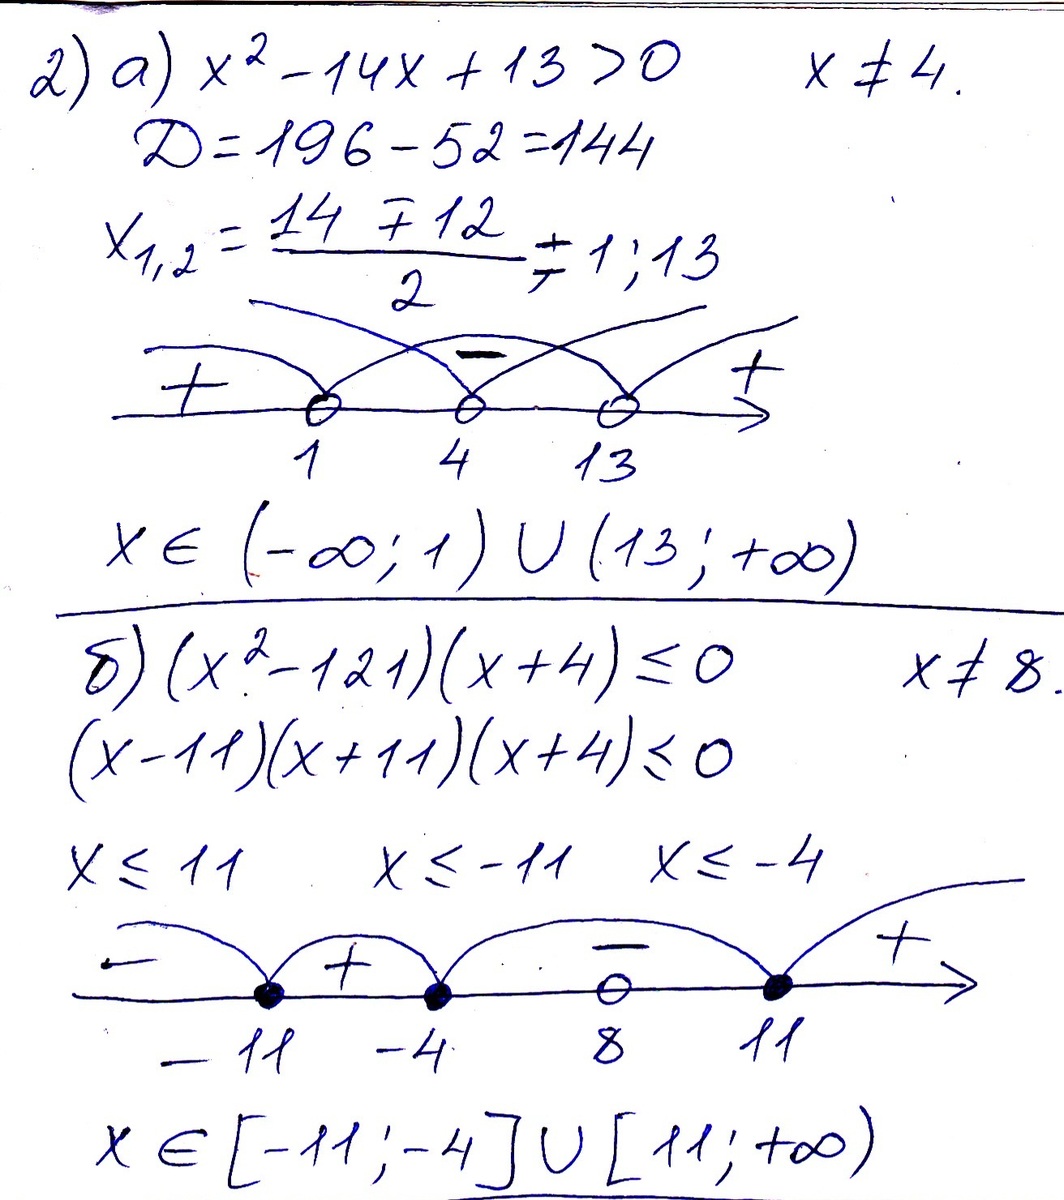 2) а) x² - 14x + 13 > 0 x ≠ 4.
D = 196 - 52 = 144
x₁,₂ = (14 ∓ 12)/2 = 1; 13
+ - +
1 4 13
x ∈ (-∞; 1) ∪ (13; +∞)
б) (x² - 121)(x + 4) ≤ 0 x ≠ 8.
(x - 11)(x + 11)(x + 4) ≤ 0
x ≤ 11 x ≤ -11 x ≤ -4
- + - +
-11 -4 8 11
x ∈ [-11; -4] ∪ [11; +∞)